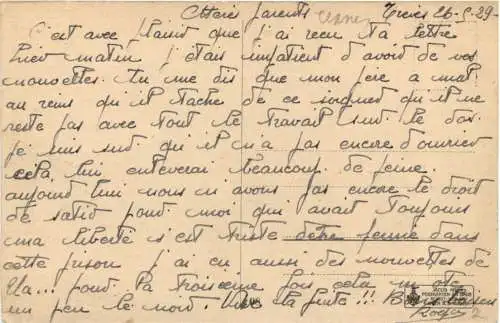 Chers parents Treves 26-5-29
C'est avec plaisir que j'ai recu ta lettre
hier matin j'étais impatient d'avoir de vos
nouvelles. Tu me dis que mon pere a mal
au reins qu'il tache de ce soigner qu'il ne
reste pas avec tout le travail sur le dos.
Je suis sur qu'il n'a pas encore d'ouvrier
cela lui enleverai beaucoup de peine.
aujourd'hui nous en avons pas encore le droit
de sortir pour moi qui avait toujours
ma liberté s'est triste detre fermé dans
cette prison j'ai eu aussi des nouvelles de
pour la troisieme fois cela m'ote
un peu le noir. Vive la fuite!!! Bons baisers
Roger
2